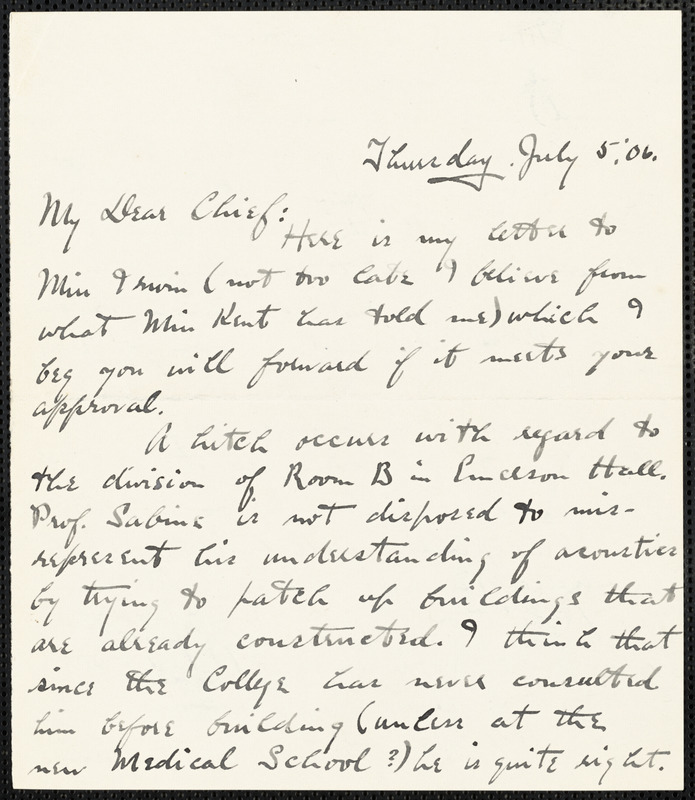 Thursday. July 5.'06.
My Dear Chief:
Here is my letter to
Miss Irwin (not too late I believe from
what Miss Kent has told me) which I
beg you will forward if it meets your
approval.
A hitch occurs with regard to
the division of Room B in Emerson Hall.
Prof. Sabine is not disposed to mis-
represent his understanding of acoustics
by trying to patch up buildings that
are already constructed. I think that
since the College has never consulted
him before building (unless at the
new Medical School?) he is quite right.